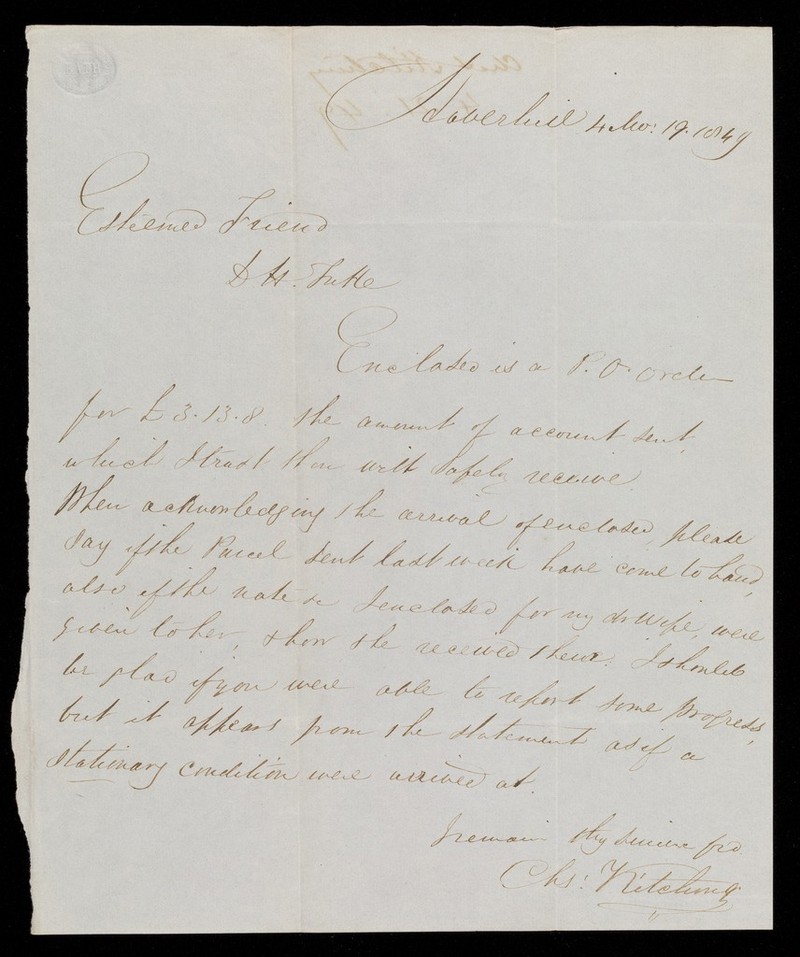 Haverhill 4 Mo: 19. 1849
Esteemed Friend
D H. Tuke
Enclosed is a P. O. order
for £ 3. 13. 8. the amount of account sent,
which I trust thou wilt safely receive.
When acknowledging the arrival of enclosed, please
say if the Parcel sent last week have come to hand,
also if the notes I enclosed for my dr Wife, were
given to her, & how she received them. I should
be glad if you were able to report some progress,
but it appears from the statement as if a
stationary condition were arrived at.
I remain thy sincere frd
Chs: Kitching